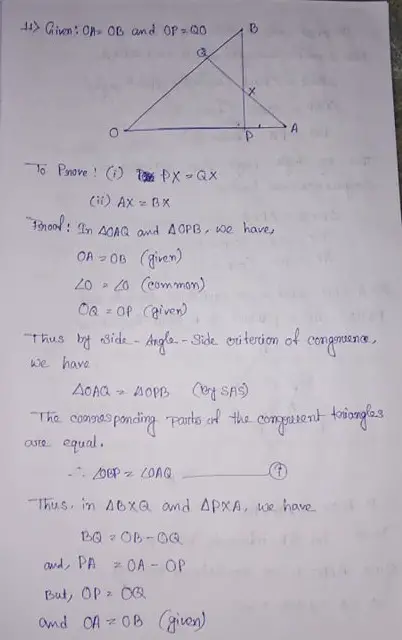 11> Given: OA= OB and OP = QO
B
Q
X
O
P
A
To Prove: (i) PX = QX
(ii) AX = BX
Proof: In ΔOAQ and ΔOPB, we have,
OA = OB (given)
∠O = ∠O (common)
OQ = OP (given)
Thus by Side-Angle-Side criterion of congruence,
we have
ΔOAQ = ΔOPB (By SAS)
The corresponding parts of the congruent triangles
are equal.
∴ ∠OBP = ∠OAQ
Thus, in ΔBXQ and ΔPXA, we have
BQ = OB - OQ
and, PA = OA - OP
But, OP = OQ
and OA = OB (given)